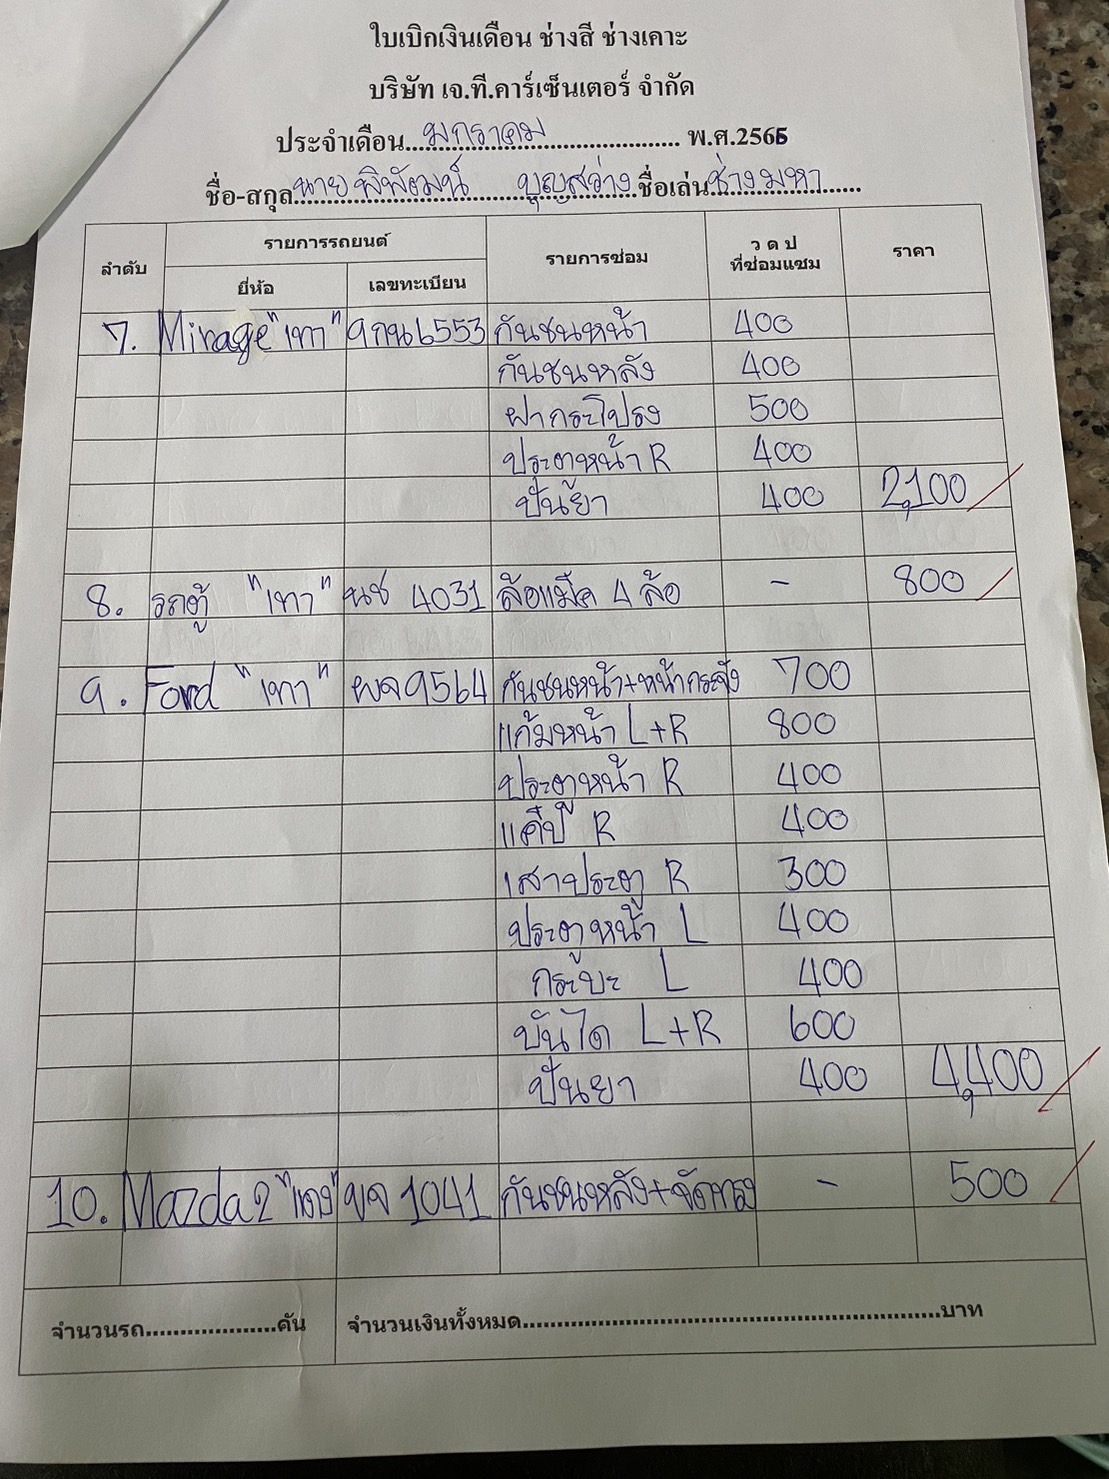 ใบเบิกเงินเดือน ช่างสี ช่างเคาะ
บริษัท เจ.ที.คาร์เซ็นเตอร์ จำกัด
ประจำเดือน...มกราคม...พ.ศ.2565
ชื่อ-สกุล นายพิพัฒน์ บุญสว่าง ชื่อเล่น ช่างมหา
ลำดับ รายการรถยนต์ รายการซ่อม ว ด ป ที่ซ่อมแซม ราคา
ยี่ห้อ เลขทะเบียน
7. Mirage "เทา" 9กน6553 กันชนหน้า 400
กันชนหลัง 400
ฝากระโปรง 500
ประตูหน้า R 400
ปั่นยา 400 2,100
8. รถตู้ "เทา" นช 4031 ล้อแม็ค 4 ล้อ - 800
9. Ford "เทา" ผล9564 กันชนหน้า+หน้ากระจัง 700
แก้มหน้า L+R 800
ประตูหน้า R 400
แค๊ป R 400
เสาประตู R 300
ประตูหน้า L 400
กระบะ L 400
บันได L+R 600
ปั่นยา 400 4,400
10. Mazda2 "แดง" ขจ 1041 กันชนหลัง+จัดทรง - 500
จำนวนรถ....................คัน จำนวนเงินทั้งหมด....................บาท